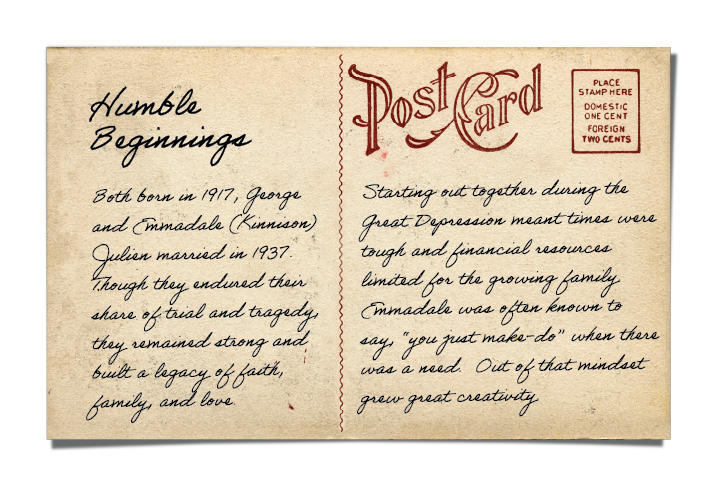 Humble
Beginnings
Both born in 1917, George
and Emmadale (Kinnison)
Julien married in 1937.
Though they endured their
share of trial and tragedy,
they remained strong and
built a legacy of faith,
family, and love.
Post Card
PLACE
STAMP HERE
DOMESTIC
ONE CENT
FOREIGN
TWO CENTS
Starting out together during the
Great Depression meant times were
tough and financial resources
limited for the growing family.
Emmadale was often known to
say, "you just make-do" when there
was a need. Out of that mindset
grew great creativity.